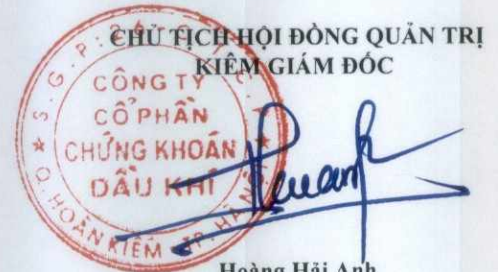 CHỦ TỊCH HỘI ĐỒNG QUẢN TRỊ
KIÊM GIÁM ĐỐC
CÔNG TY
CỔ PHẦN
CHỨNG KHOÁN
DẦU KHÍ
Q. HOÀN KIẾM TP. HÀ NỘI
Hoàng Hải Anh